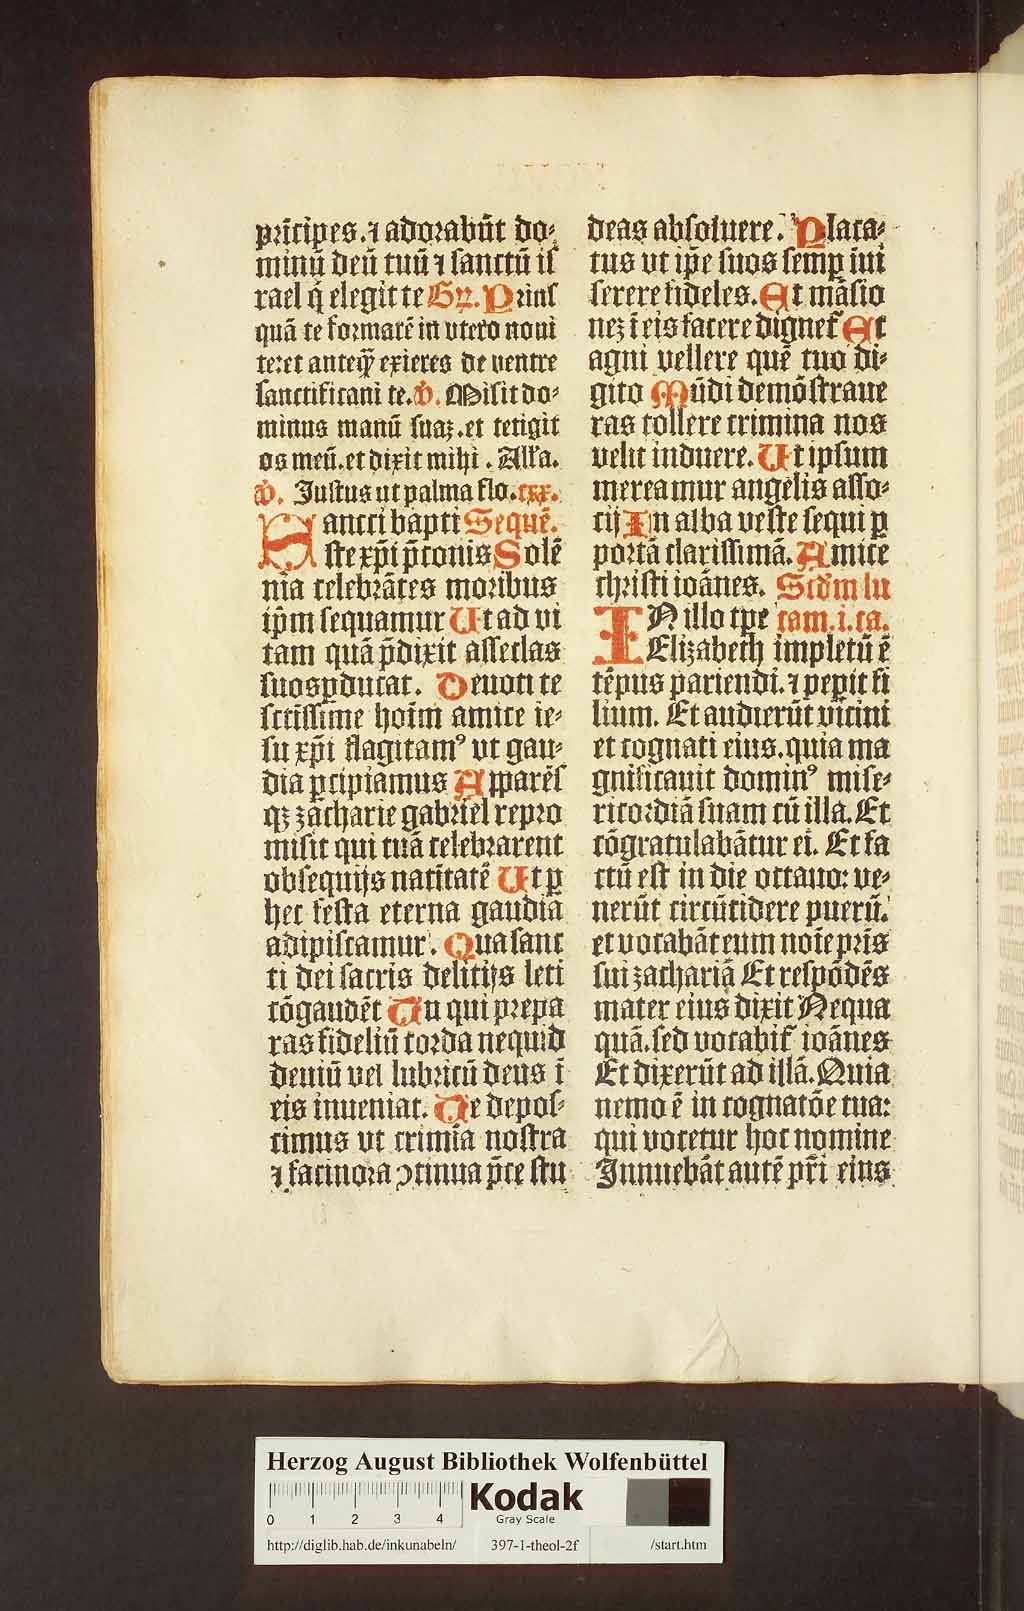 prīcipes. ⁊ adorabūt do⸗
minū deū tuū ⁊ sanctū is
rael q̄ elegit te Gr̄. Prius
quā te formarē in vtero noui
te: et anteq̄ʒ exieres de ventre
sanctificaui te. v̄. Misit do⸗
minus manū suaʒ. et tetigit
os meū. et dixit mihi. Allꝰa.
v̄. Iustus ut palma flo. cxx.
Sancti bapti Sequē.
ste xp̄i p̄conis Solē
nia celebrātes moribus
ip̄m sequamur Ut ad vi
tam quā p̄dixit asseclas
suos ꝑducat. Deuoti te
sctīssime hoīm amice ie⸗
su xp̄i flagitamꝰ vt gau⸗
dia ꝑcipiamus Apparēs
qʒ zacharie gabriel repro
misit qui tuā celebrarent
obsequijs natītatē Ut ꝑ
hec festa eterna gaudia
adipiscamur. Qua sanc
ti dei sacris delitijs leti
cōgaudēt Tu qui prepa
ras fideliū corda ne quid
deuiū vel lubricū deus ī
eis inueniat. Te depos⸗
cimus vt crimīa nostra
⁊ facinora ꝯtinua p̄ce stu
deas absoluere. Placa⸗
tus vt ip̄e suos semꝑ iui
serere fideles. Et māsio
neʒ ī eis facere dignet᷑ Et
agni vellere quē tuo di⸗
gito Mūdi demōstraue
ras tollere crimina nos
velit induere. Ut ipsum
mereamur angelis asso⸗
cij In alba veste sequi ꝑ
portā clarissimā. Amice
christi ioānes. Scd̄m lu
IN illo tꝑe cam. i. ca.
Elizabeth impletū ē
tēpus pariendi. ⁊ peperit fi
lium. Et audierūt vicini
et cognati eius. quia ma
gnificauit dominꝰ mise⸗
ricordiā suam cū illa. Et
cōgratulabātur ei. Et fa
ctū est in die octauo: ve⸗
nerūt circūcidere puerū.
et vocabāt eum noīe pr̄is
sui zachariā Et respōdēs
mater eius dixit Nequa
quā. sed vocabit᷑ ioānes
Et dixerūt ad illā. Quia
nemo ē in cognatōe tua:
qui vocetur hoc nomine
Innuebāt autē pr̄i eius
Herzog August Bibliothek Wolfenbüttel
0 1 2 3 4
Kodak
Gray Scale
http://diglib.hab.de/inkunabeln/ 397-1-theol-2f /start.htm